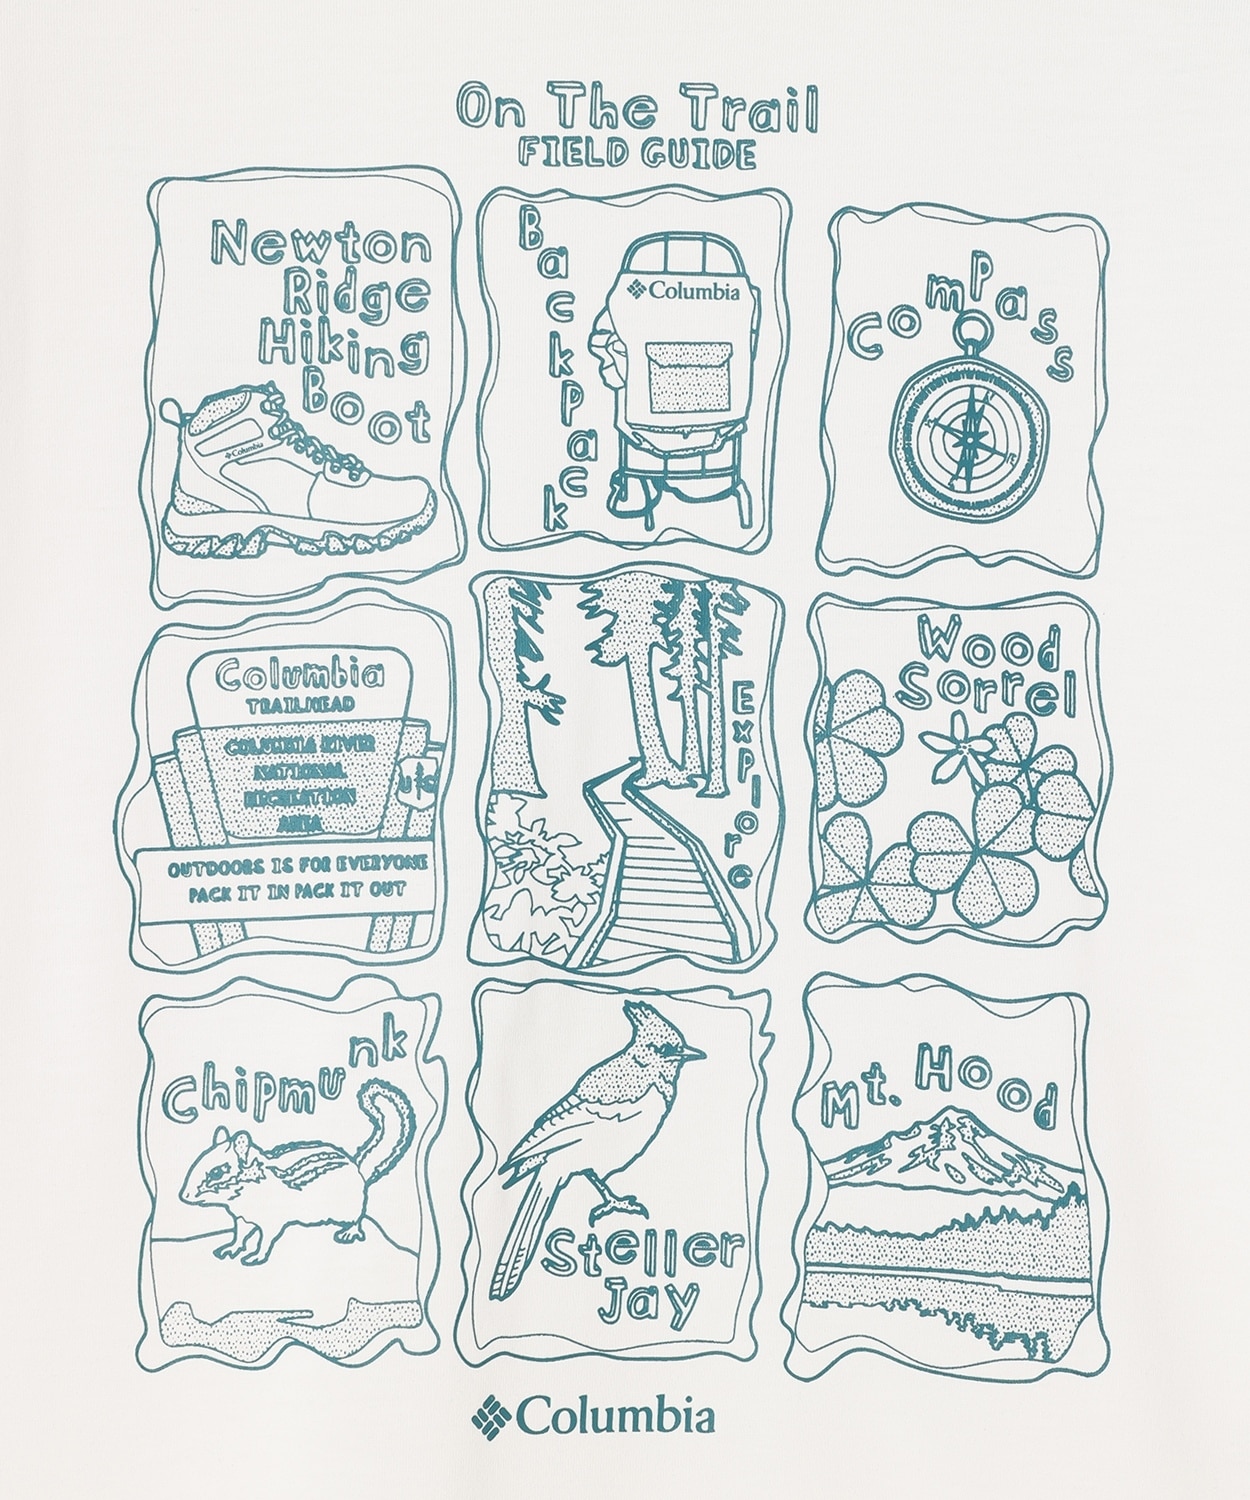 On The Trail
FIELD GUIDE
Newton
Ridge
Hiking
Boot
Columbia
Backpack
Columbia
Compass
Columbia
TRAILHEAD
COLUMBIA RIVER
NATIONAL
RECREATION
AREA
OUTDOORS IS FOR EVERYONE
PACK IT IN PACK IT OUT
Explore
Wood
Sorrel
Chipmunk
Steller
Jay
Mt. Hood
Columbia